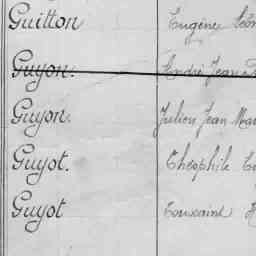 Guitton Eugène
Guyon. André Jean
Guyon. Julien Jean
Guyot. Théophile
Guyot Toussaint